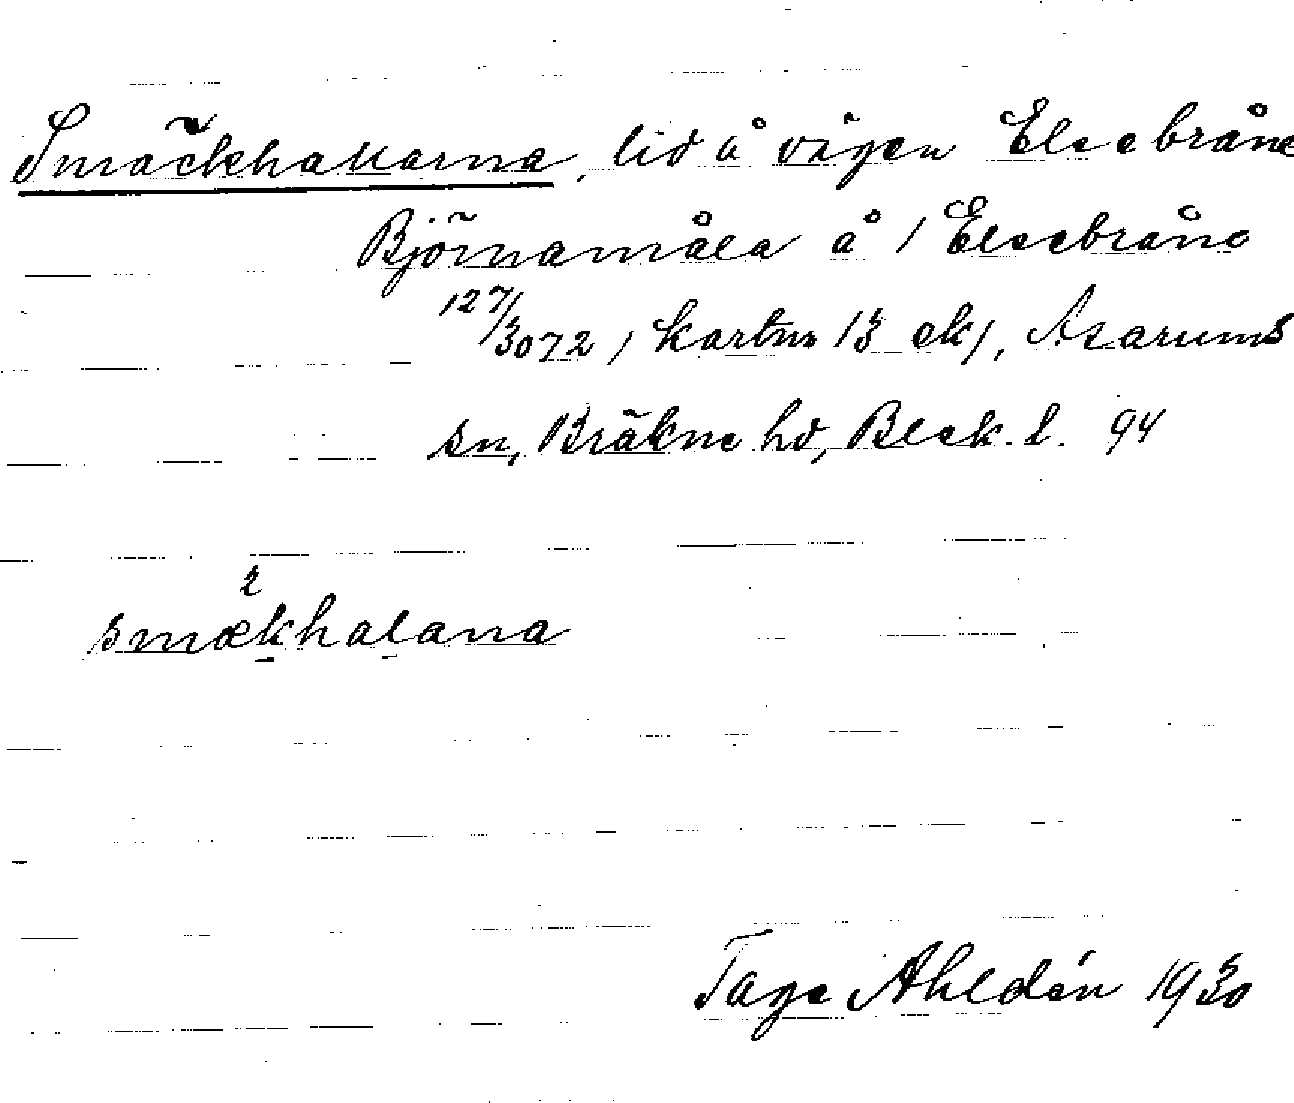 Smäckhallarna, lid å vägen Elsebråne
Björnamåla å / Elsebråne
127/3072, kartnr 13 ek/, Asarums
sn, Bräkne hd, Blek. l. 94
2
smækhalana
Tage Ahldén 1930